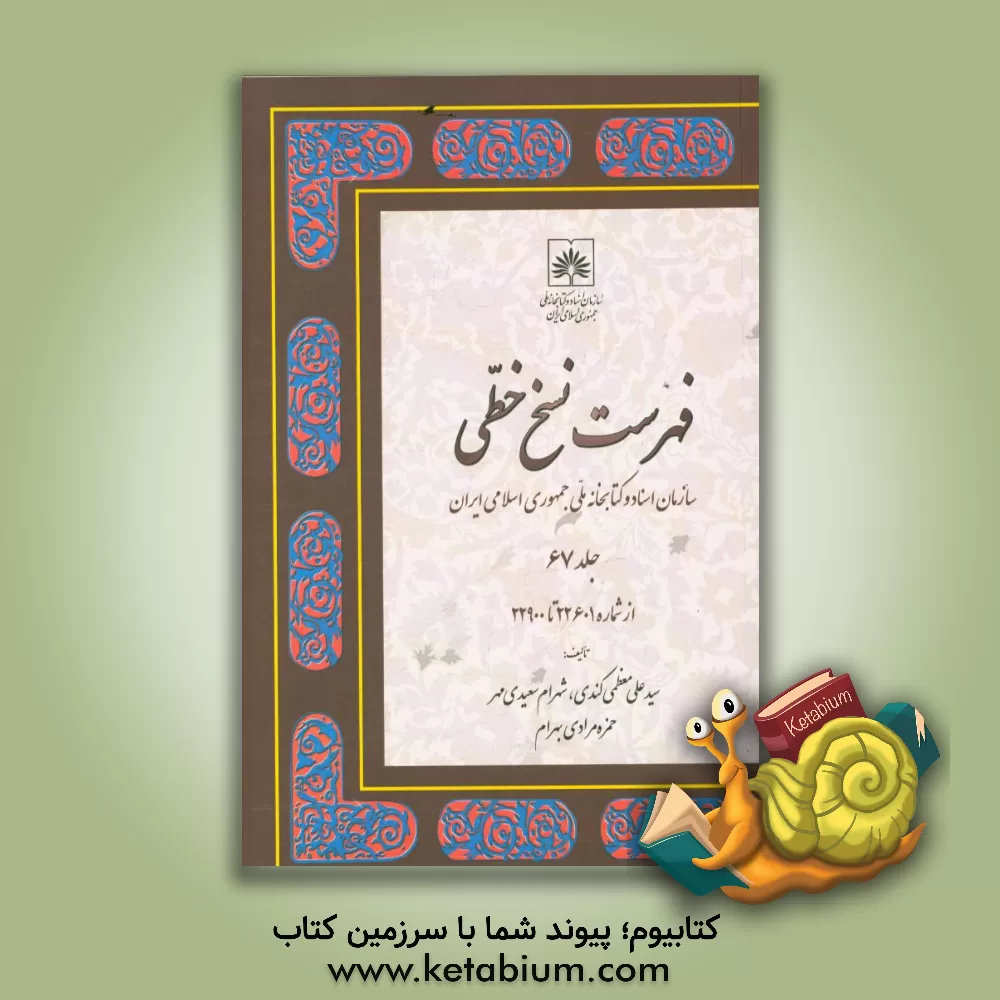 سازمان اسناد و کتابخانه ملی
جمهوری اسلامی ایران
فهرست نسخ خطّی
سازمان اسناد و کتابخانه ملّی جمهوری اسلامی ایران
جلد ۶۷
از شماره ۲۲۶۰۱ تا ۲۲۹۰۰
تألیف:
سید علی معظمی کندی، شهرام سعیدی مهر
حمزه مرادی بهرام
Ketabium
کتابیوم؛ پیوند شما با سرزمین کتاب
www.ketabium.com